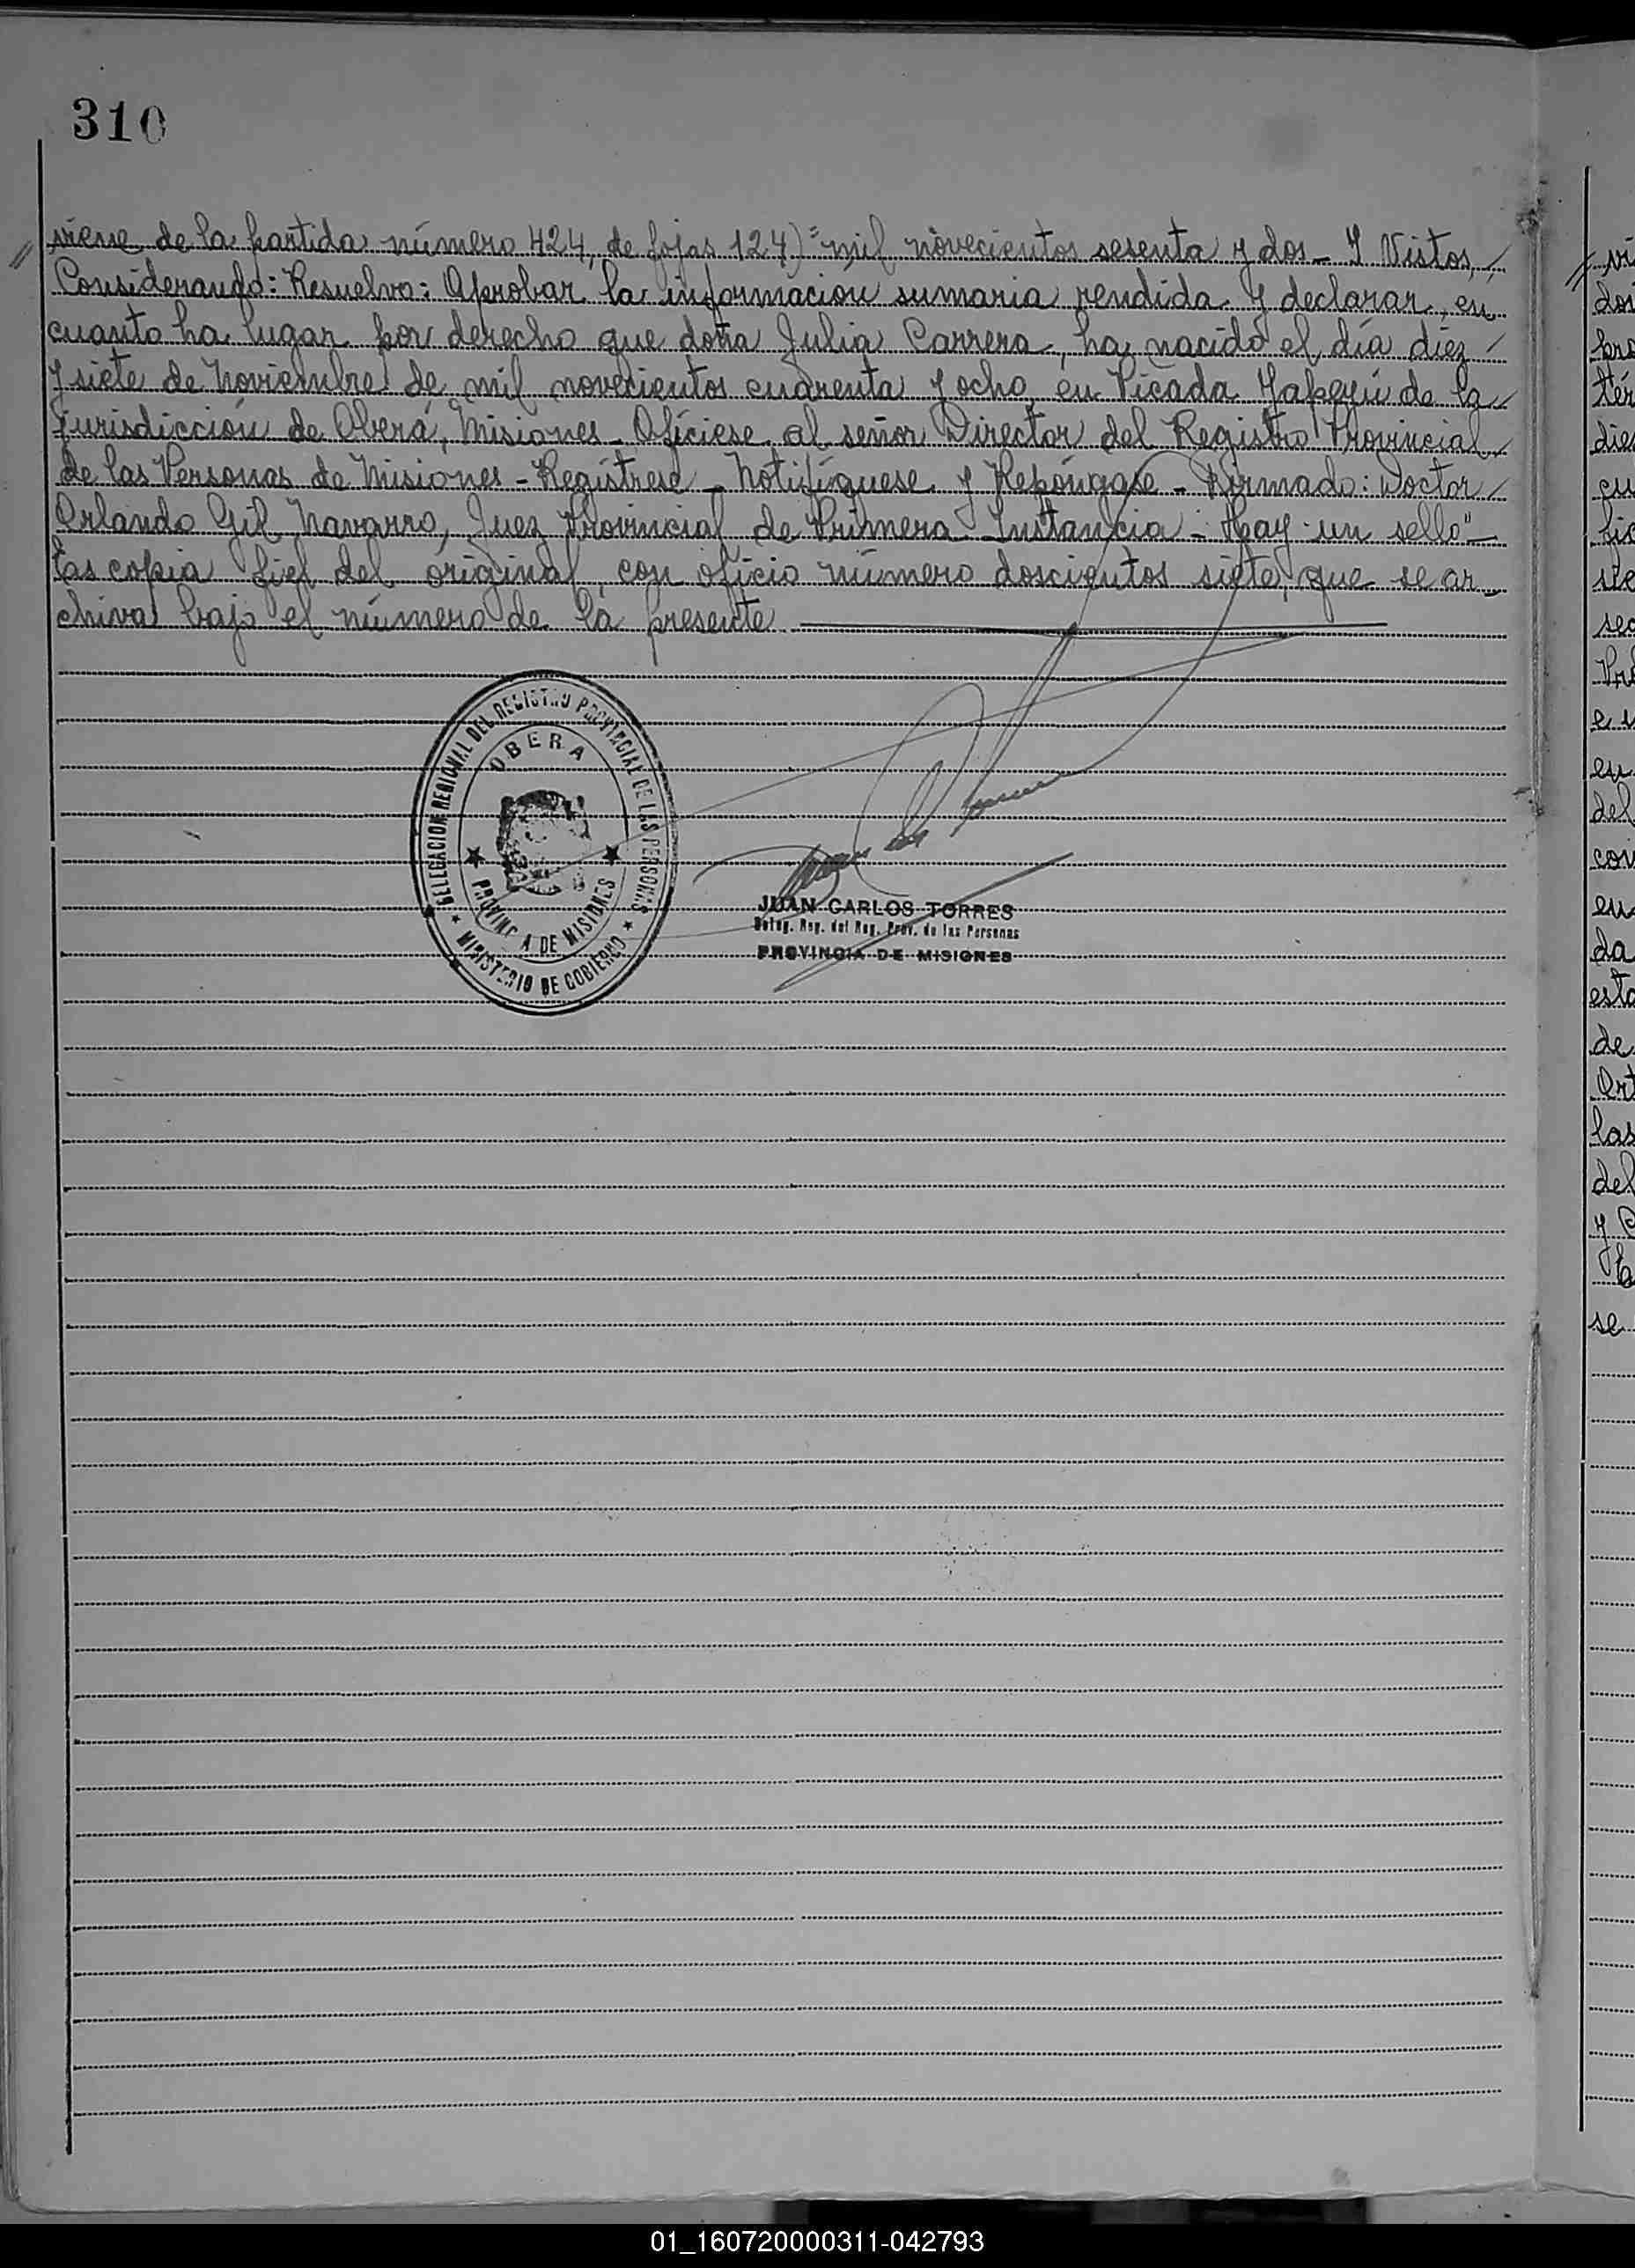 310
// viene de la partida número 424, de fojas 124) "mil novecientos sesenta y dos - Y Vistos, -
Considerando: Resuelvo: Aprobar la informacion sumaria rendida y declarar, en
cuanto ha lugar por derecho que doña Julia Carrera, ha nacido el día diez -
y siete de Noviembre de mil novecientos cuarenta y ocho, en Picada Yapeyú de la
jurisdicción de Oberá, Misiones - Ofíciese al señor Director del Registro Provincial
de las Personas de Misiones - Regístrese - Notifíquese y Repóngase - Firmado: Doctor
Orlando Gil Navarro, Juez Provincial de Primera Instancia - Hay un sello" -
Es copia fiel del original, con oficio número doscientos siete, que se ar-
chiva bajo el número de la presente
DELEGACION REGIONAL DEL REGISTRO PROVINCIAL DE LAS PERSONAS
OBERA
PROVINCIA DE MISIONES
MINISTERIO DE GOBIERNO
JUAN CARLOS TORRES
Deleg. Reg. del Reg. Prov. de las Personas
PROVINCIA DE MISIONES
01_160720000311-042793